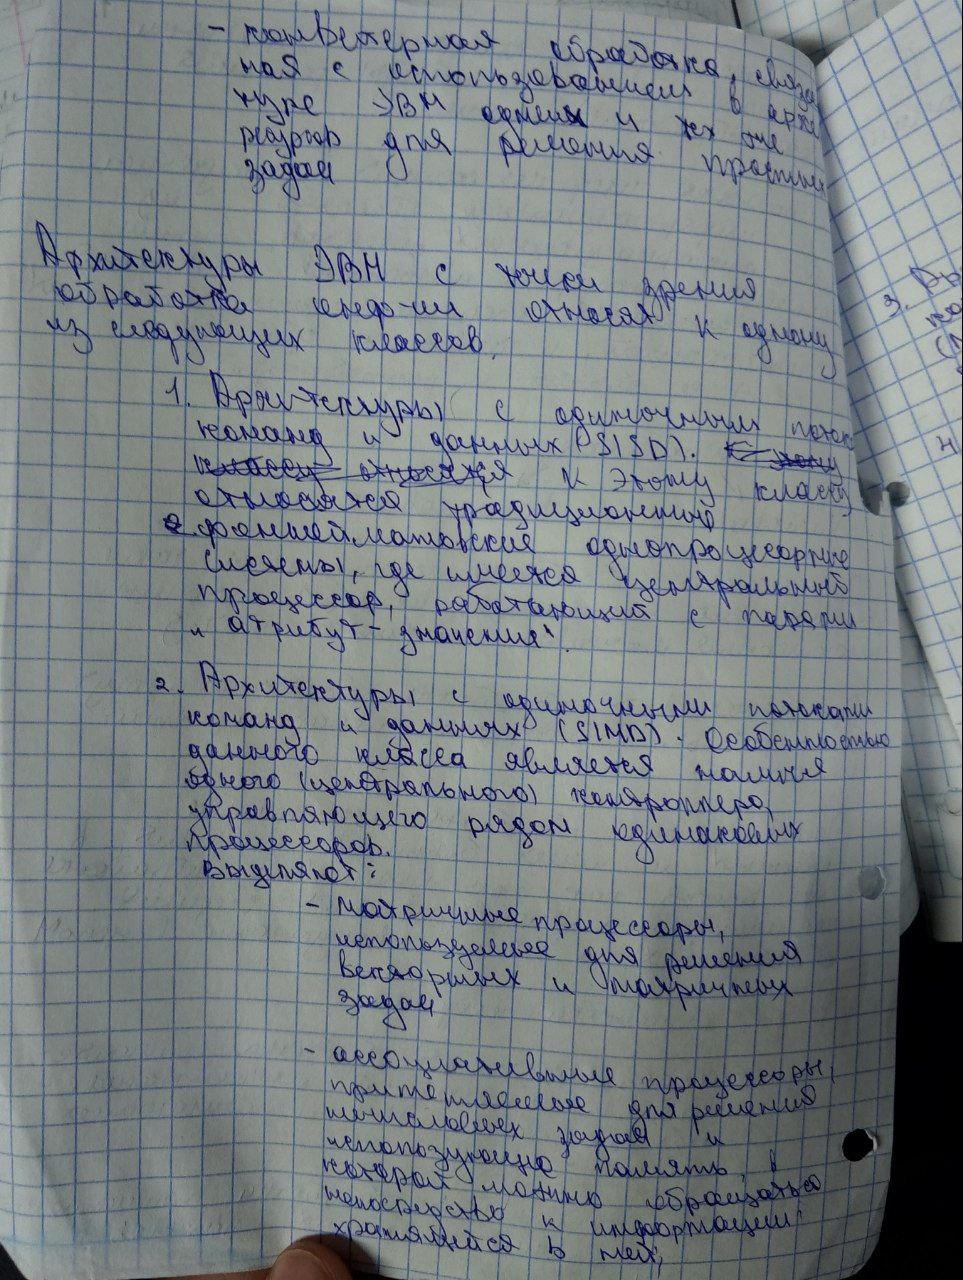 - конвейерная обработка, связан
ная с использованием в архи
туре ЭВМ одних и тех же
ресурсов для решения простых
задач
Архитектуры ЭВМ с точки зрения
обработки инфо-ии относят к одному
из следующих классов.
1. Архитектуры с одиночным потоко
команд и данных (SISD). К этому
классу относятся К этому классу
относятся традиционные
2. фоннеймановские однопроцессорные
системы, где имеется центральный
процессор, работающий с парами
"атрибут-значения".
2. Архитектуры с одиночными потоками
команд и данных (SIMD). Особенностью
данного класса является наличия
одного (центрального) контроллера,
управляющего рядом одинаковых
процессоров.
Выделяют:
- матричные процессоры,
используемые для решения
векторных и матричных
задач
- ассоциативные процессоры,
применяемые для решения
задач и
использующие память, в
которой можно обращаться
к информации
хранящейся в ней,
3.